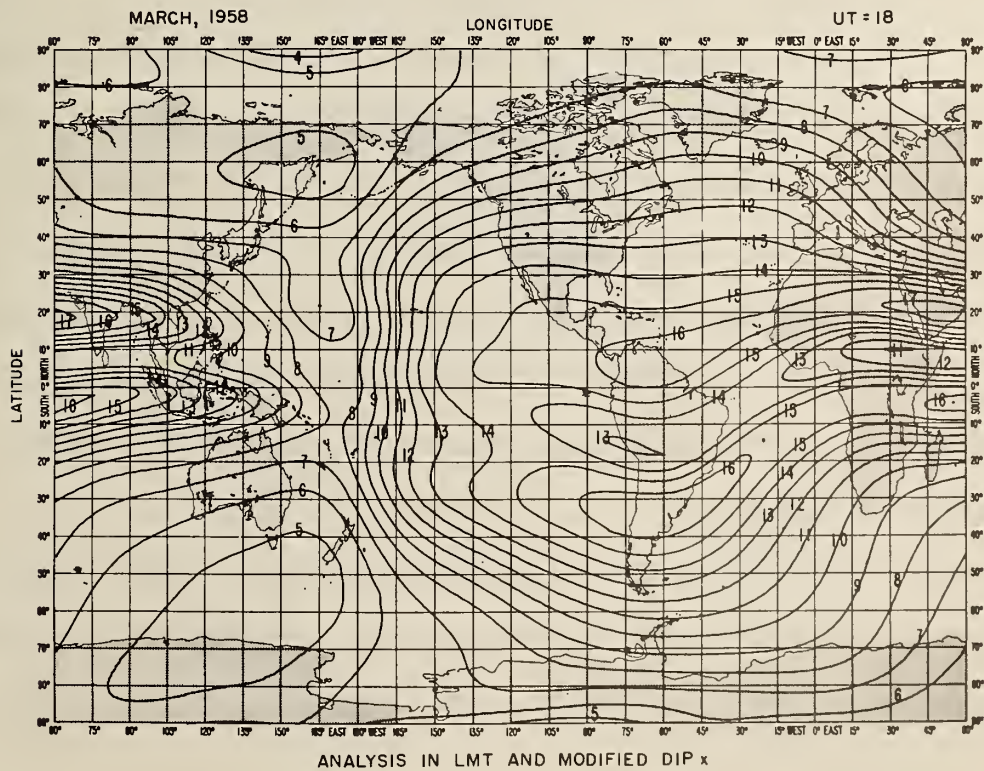 MARCH, 1958
LONGITUDE
UT = 18
60° 75° 90° 105° 120° 135° 150° 165° EAST WEST 165° 150° 135° 120° 105° 90° 75° 60° 45° 30° 15° WEST 0° EAST 15° 30° 45° 60°
LATITUDE
90°
80°
70°
60°
50°
40°
30°
20°
10°
SOUTH 0° NORTH
10°
20°
30°
40°
50°
60°
70°
80°
90°
4
5
7
6
8
7
5
8
9
10
11
6
12
13
14
15
17
16
14
13
7
16
11
10
9
8
15
13
11
12
16
15
14
9
11
8
15
10
13
14
13
12
15
7
16
14
6
12
13
5
11
10
9
8
7
6
5
60° 75° 90° 105° 120° 135° 150° 165° EAST WEST 165° 150° 135° 120° 105° 90° 75° 60° 45° 30° 15° WEST 0° EAST 15° 30° 45° 60°
ANALYSIS IN LMT AND MODIFIED DIP x